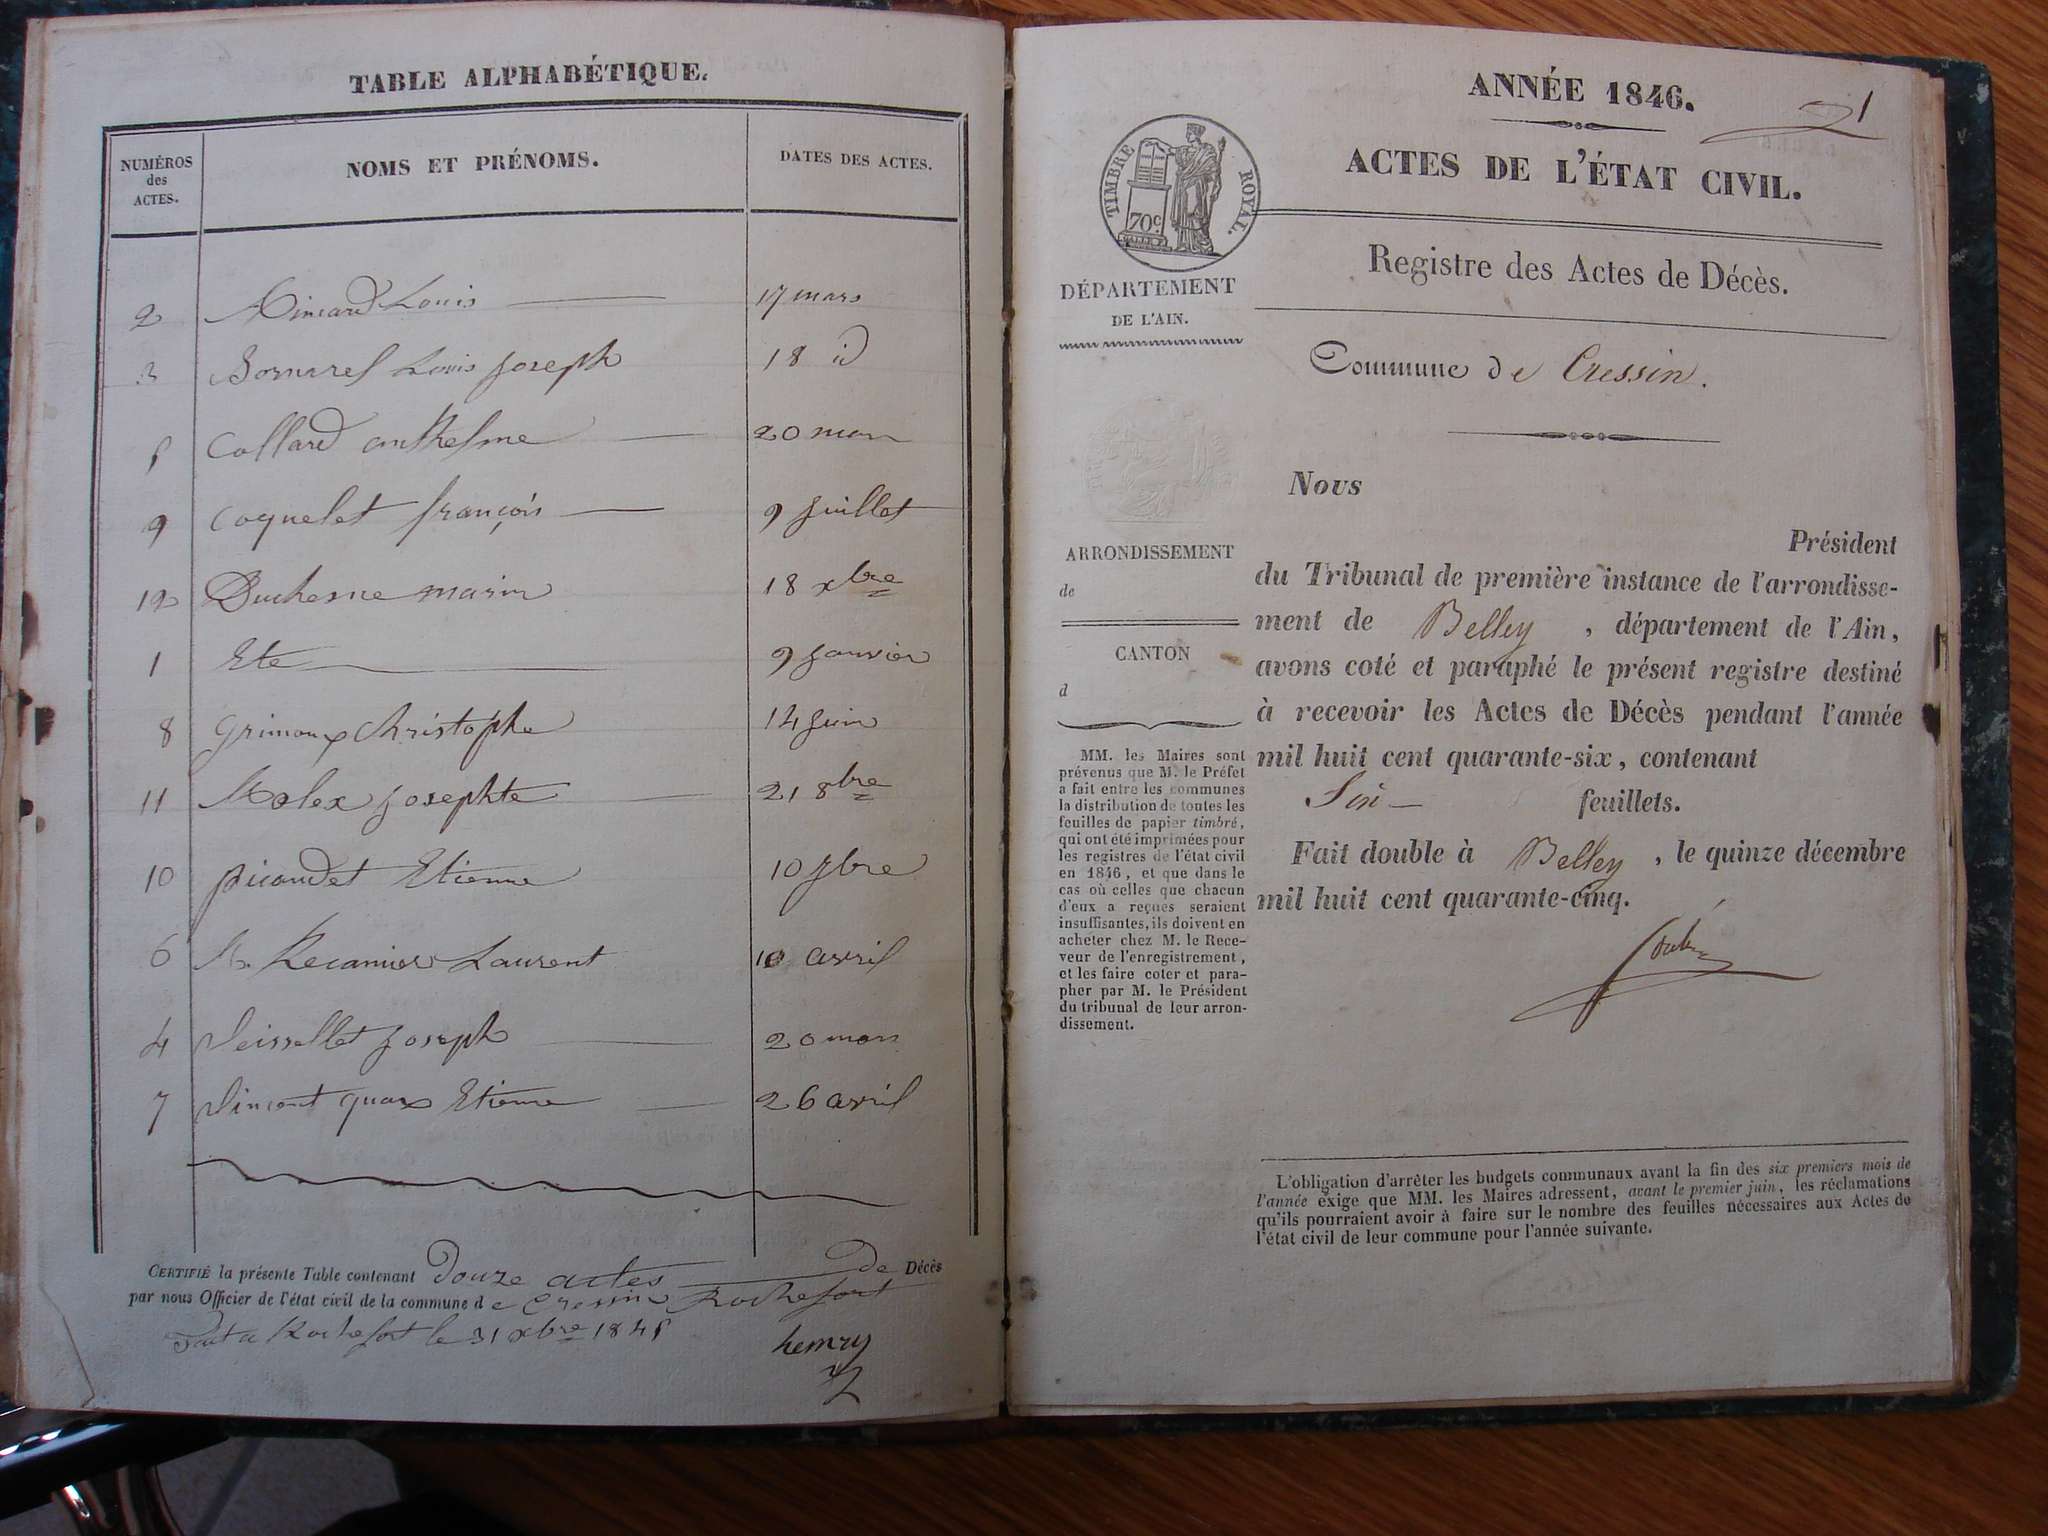 TABLE ALPHABÉTIQUE.
NUMÉROS des ACTES. NOMS ET PRÉNOMS. DATES DES ACTES.
2 Louis 17 mars
3 Bornarel Louis Joseph 18 id
5 Collard anthelme 20 mars
9 Coquelet françois 9 Juillet
12 Duchesne marin 18 xbre
1 Ete 9 Janvier
8 Grimoux Christophe 14 Juin
11 Molex Josephte 21 8bre
10 picandet Etienne 10 7bre
6 Recamier Laurent 10 avril
4 Seissellet Joseph 20 mars
7 Etienne 26 avril
CERTIFIÉ la présente Table contenant Douze actes de Décès
par nous Officier de l'état civil de la commune de Cressin Rochefort
fait a Rochefort le 31 xbre 1845
hemry
ANNÉE 1846.
1
ACTES DE L'ÉTAT CIVIL.
TIMBRE ROYAL.
70c
Registre des Actes de Décès.
DÉPARTEMENT
DE L'AIN.
Commune de Cressin.
Nous
Président
du Tribunal de première instance de l'arrondisse-
ment de Belley, département de l'Ain,
avons coté et paraphé le présent registre destiné
à recevoir les Actes de Décès pendant l'année
mil huit cent quarante-six, contenant
Six feuillets.
Fait double à Belley, le quinze décembre
mil huit cent quarante-cinq.
ARRONDISSEMENT
de
CANTON
d
MM. les Maires sont
prévenus que M. le Préfet
a fait entre les communes
la distribution de toutes les
feuilles de papier timbré,
qui ont été imprimées pour
les registres de l'état civil
en 1846, et que dans le
cas où celles que chacun
d'eux a reçues seraient
insuffisantes, ils doivent en
acheter chez M. le Rece-
veur de l'enregistrement,
et les faire coter et para-
pher par M. le Président
du tribunal de leur arron-
dissement.
L'obligation d'arrêter les budgets communaux avant la fin des six premiers mois de
l'année exige que MM. les Maires adressent, avant le premier juin, les réclamations
qu'ils pourraient avoir à faire sur le nombre des feuilles nécessaires aux Actes de
l'état civil de leur commune pour l'année suivante.